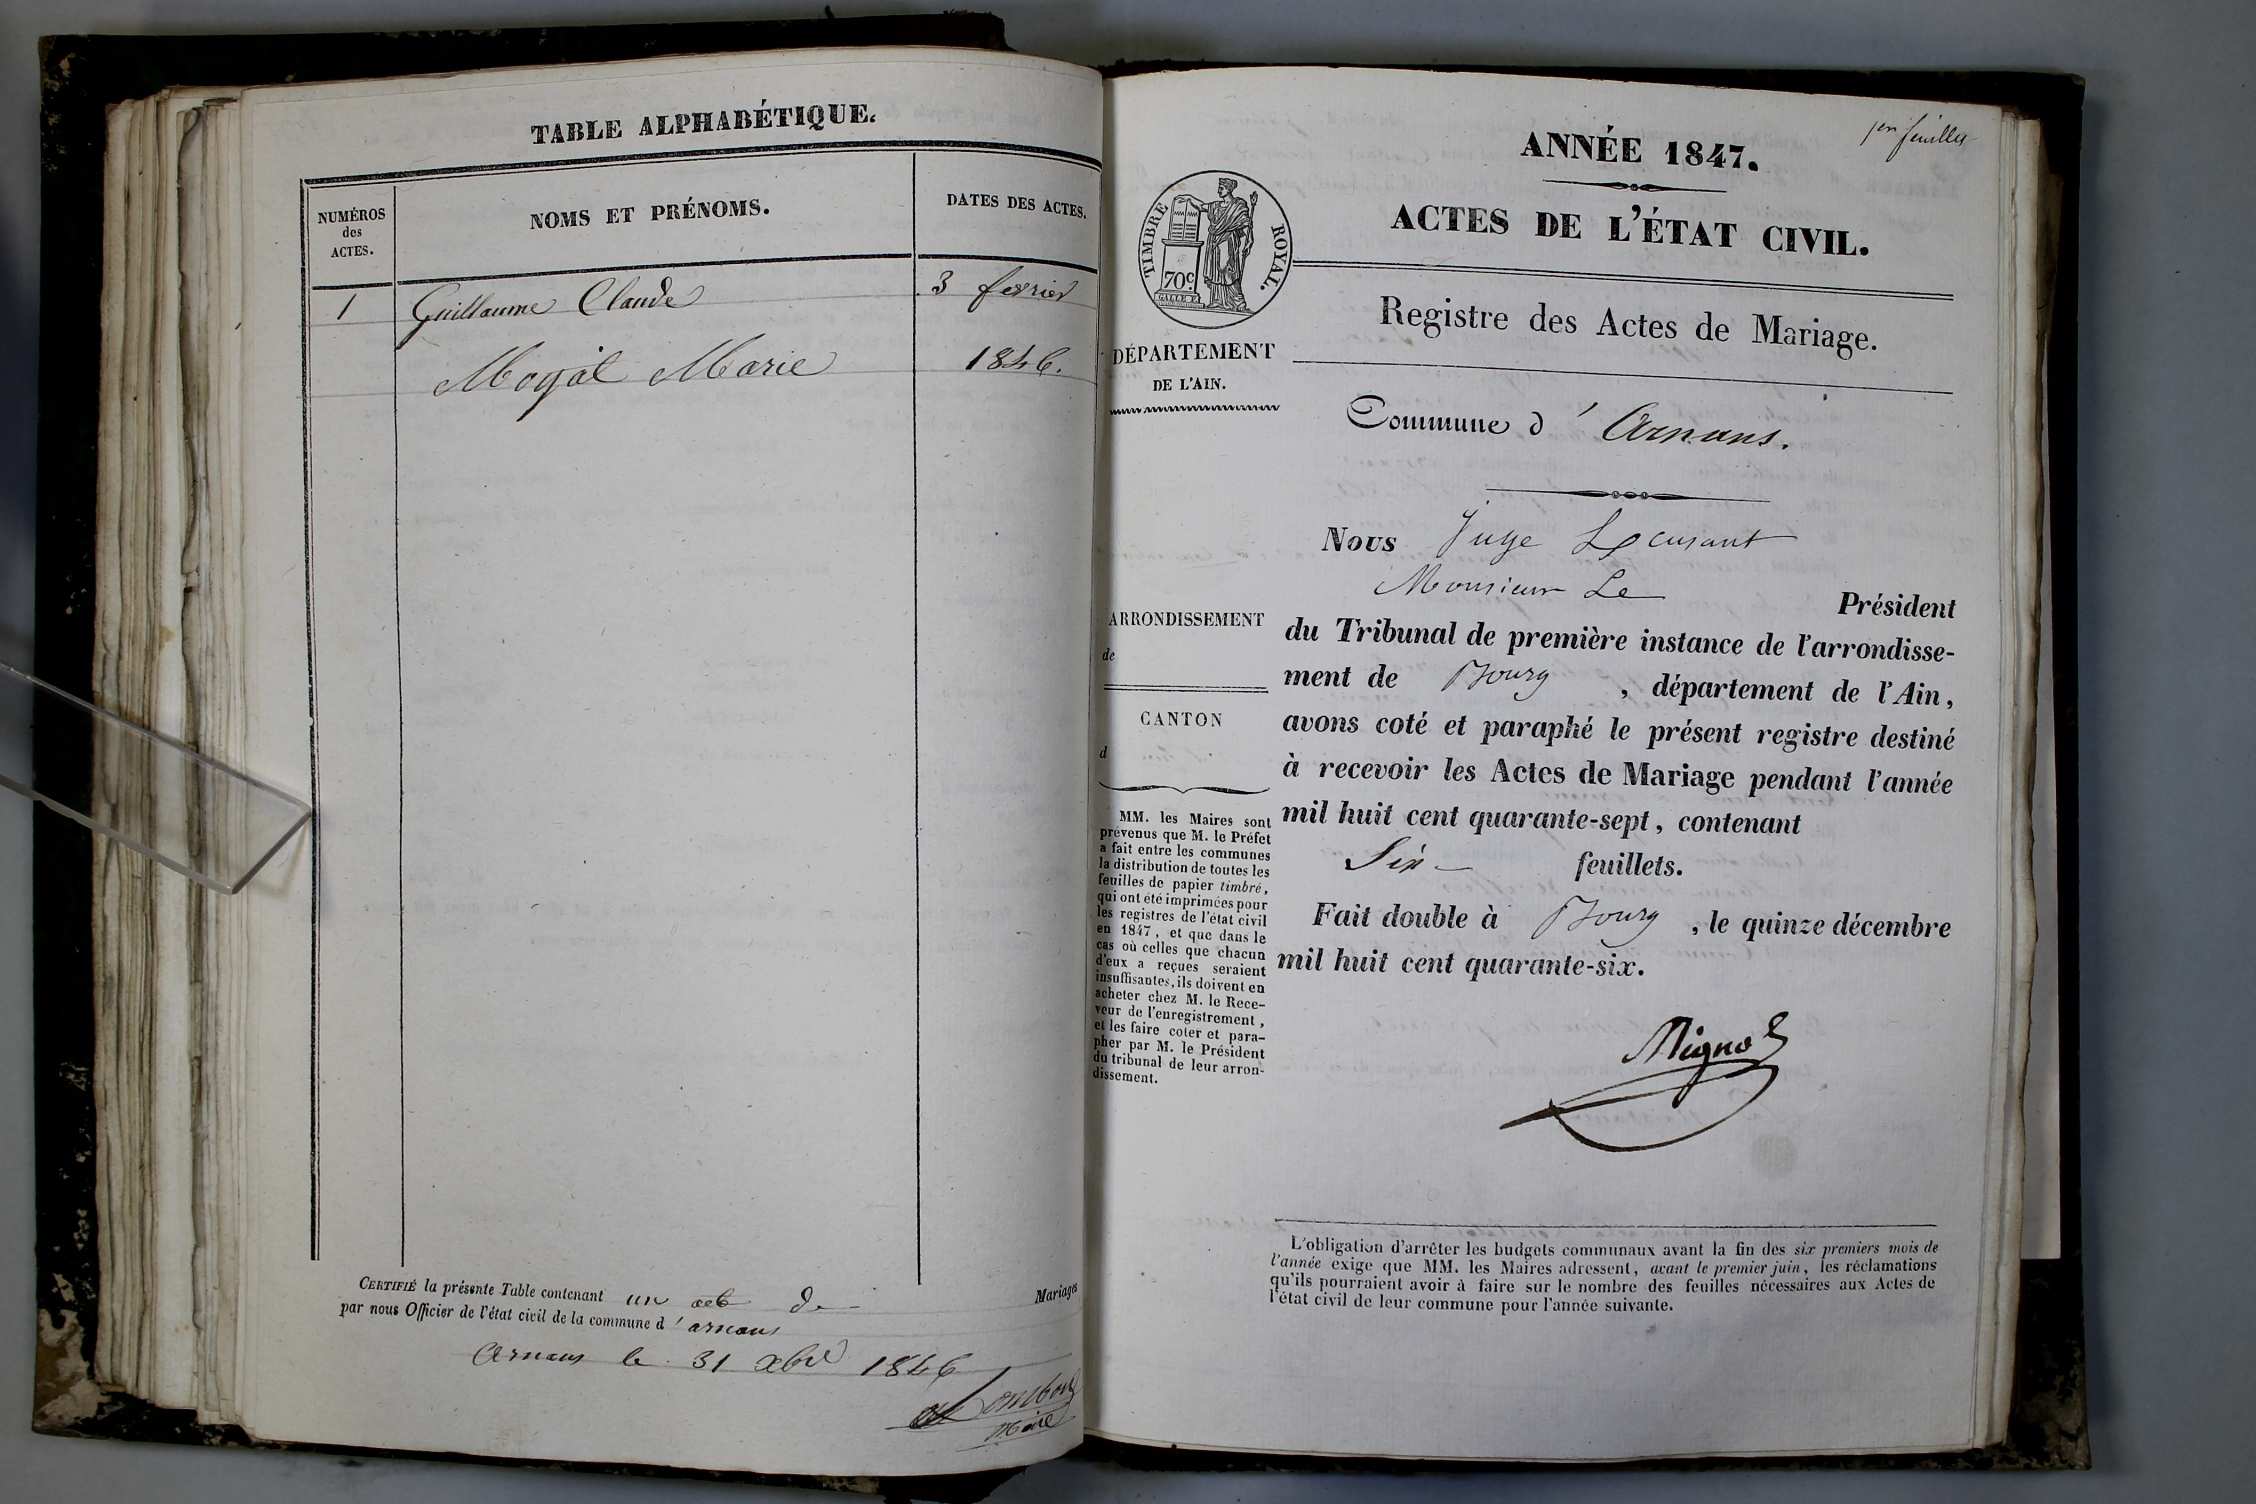 TABLE ALPHABÉTIQUE.
NUMÉROS
des
ACTES.
NOMS ET PRÉNOMS.
DATES DES ACTES.
1 Guillaume Claude 3 fevrier
Marie 1846.
CERTIFIÉ la présente Table contenant un acte de Mariages
par nous Officier de l'état civil de la commune d'arnans
Arnans le 31 xbre 1846
Maire
1er feuillet
ANNÉE 1847.
ACTES DE L'ÉTAT CIVIL.
TIMBRE ROYAL.
70c
Registre des Actes de Mariage.
DÉPARTEMENT
DE L'AIN.
Commune d'Arnans.
ARRONDISSEMENT
de
CANTON
d
MM. les Maires sont
prévenus que M. le Préfet
a fait entre les communes
la distribution de toutes les
feuilles de papier timbré,
qui ont été imprimées pour
les registres de l'état civil
en 1847, et que dans le
cas où celles que chacun
d'eux a reçues seraient
insuffisantes, ils doivent en
acheter chez M. le Rece-
veur de l'enregistrement,
et les faire coter et para-
pher par M. le Président
du tribunal de leur arron-
dissement.
Nous Juge
Monsieur Le Président
du Tribunal de première instance de l'arrondisse-
ment de Bourg, département de l'Ain,
avons coté et paraphé le présent registre destiné
à recevoir les Actes de Mariage pendant l'année
mil huit cent quarante-sept, contenant
Six feuillets.
Fait double à Bourg, le quinze décembre
mil huit cent quarante-six.
L'obligation d'arrêter les budgets communaux avant la fin des six premiers mois de
l'année exige que MM. les Maires adressent, avant le premier juin, les réclamations
qu'ils pourraient avoir à faire sur le nombre des feuilles nécessaires aux Actes de
l'état civil de leur commune pour l'année suivante.